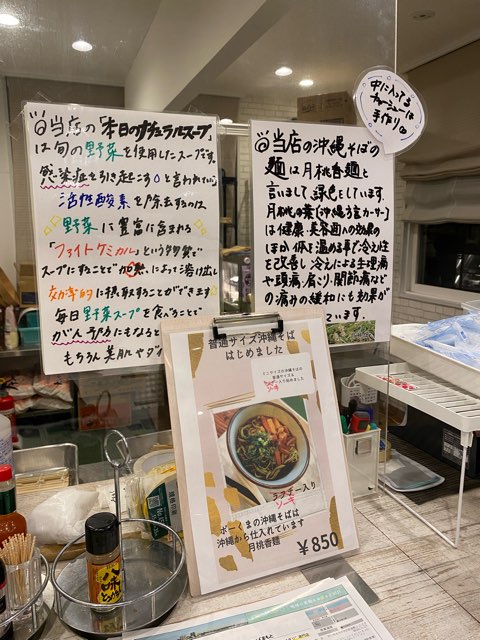 当店の「本日のナチュラルスープ」
は旬の野菜を使用したスープです。
感染症を引き起こす
と言われている
活性酸素を除去するのは
野菜に豊富に含まれる
「ファイトケミカル」という
スープにすることで加熱によって溶け出し
効率的に摂取することができます
毎日野菜スープを食べることで
がん予防にもなると
もちろん美肌やダイ
当店の沖縄そばの
麺は月桃香麺と
言いまして、緑色をしています。
月桃の葉(沖縄方言カーサー)
は健康・美容面への効果の
ほか体を温める事で冷え性
を改善し冷えによる生理痛
や頭痛、肩こり、関節痛など
の痛みの緩和にも効果が
います。
中に入ってる
チャーシューは
手作り
普通サイズ沖縄そば
はじめました
ミニサイズの沖縄そばの
普通サイズを
ソーキ
入り始めました
ラフテー入り
ソーキ
ボーくまの沖縄そばは
沖縄から仕入れています
月桃香麺
¥850